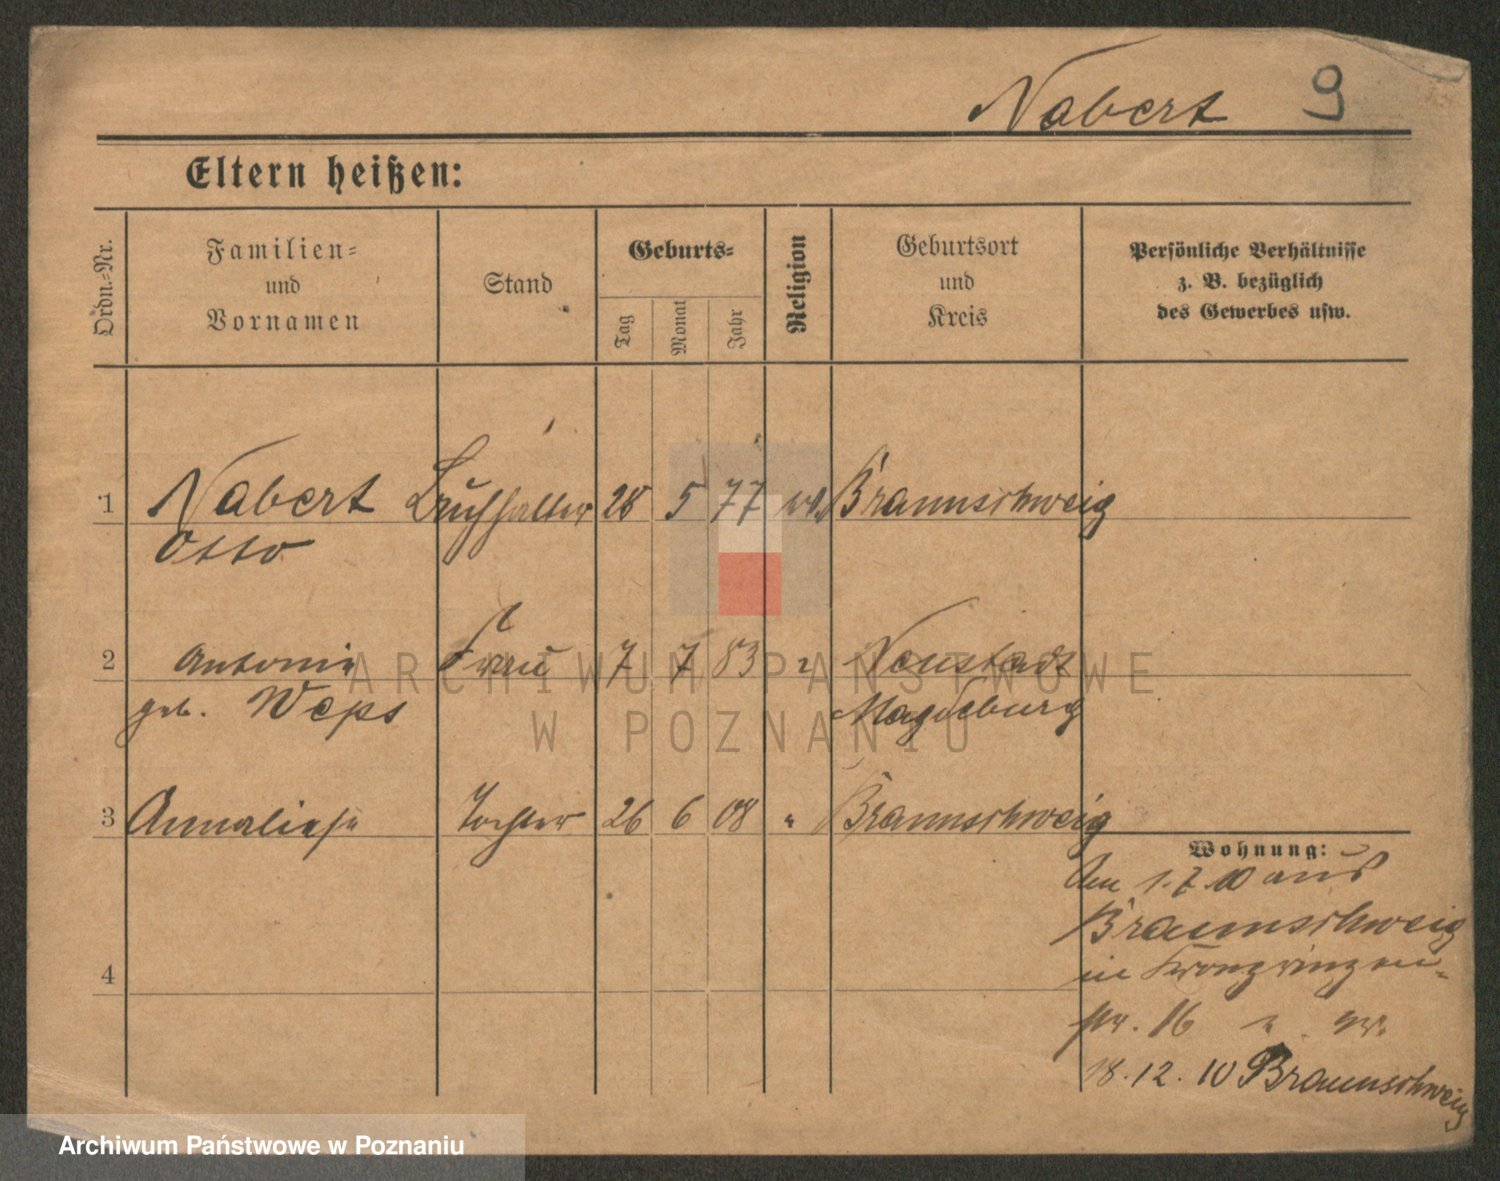 Nabert 9
Eltern heißen:
Ordn.-Nr.
Familien-
und
Vornamen
Stand
Geburts-
Tag
Monat
Jahr
Religion
Geburtsort
und
Kreis
Persönliche Verhältnisse
z. B. bezüglich
des Gewerbes usw.
1 Nabert Buchhalter 28 5 77 Braunschweig
Otto
2 Antonie Frau 7 7 83 " Neustadt
geb. Weps Magdeburg
3 Annaliese Tochter 26 6 08 " Braunschweig
Wohnung:
Am 1.7.10 aus
Braunschweig
in Kronprinzen-
str. 16
18.12.10 Braunschweig
4
ARCHIWUM PAŃSTWOWE
W POZNANIU
Archiwum Państwowe w Poznaniu